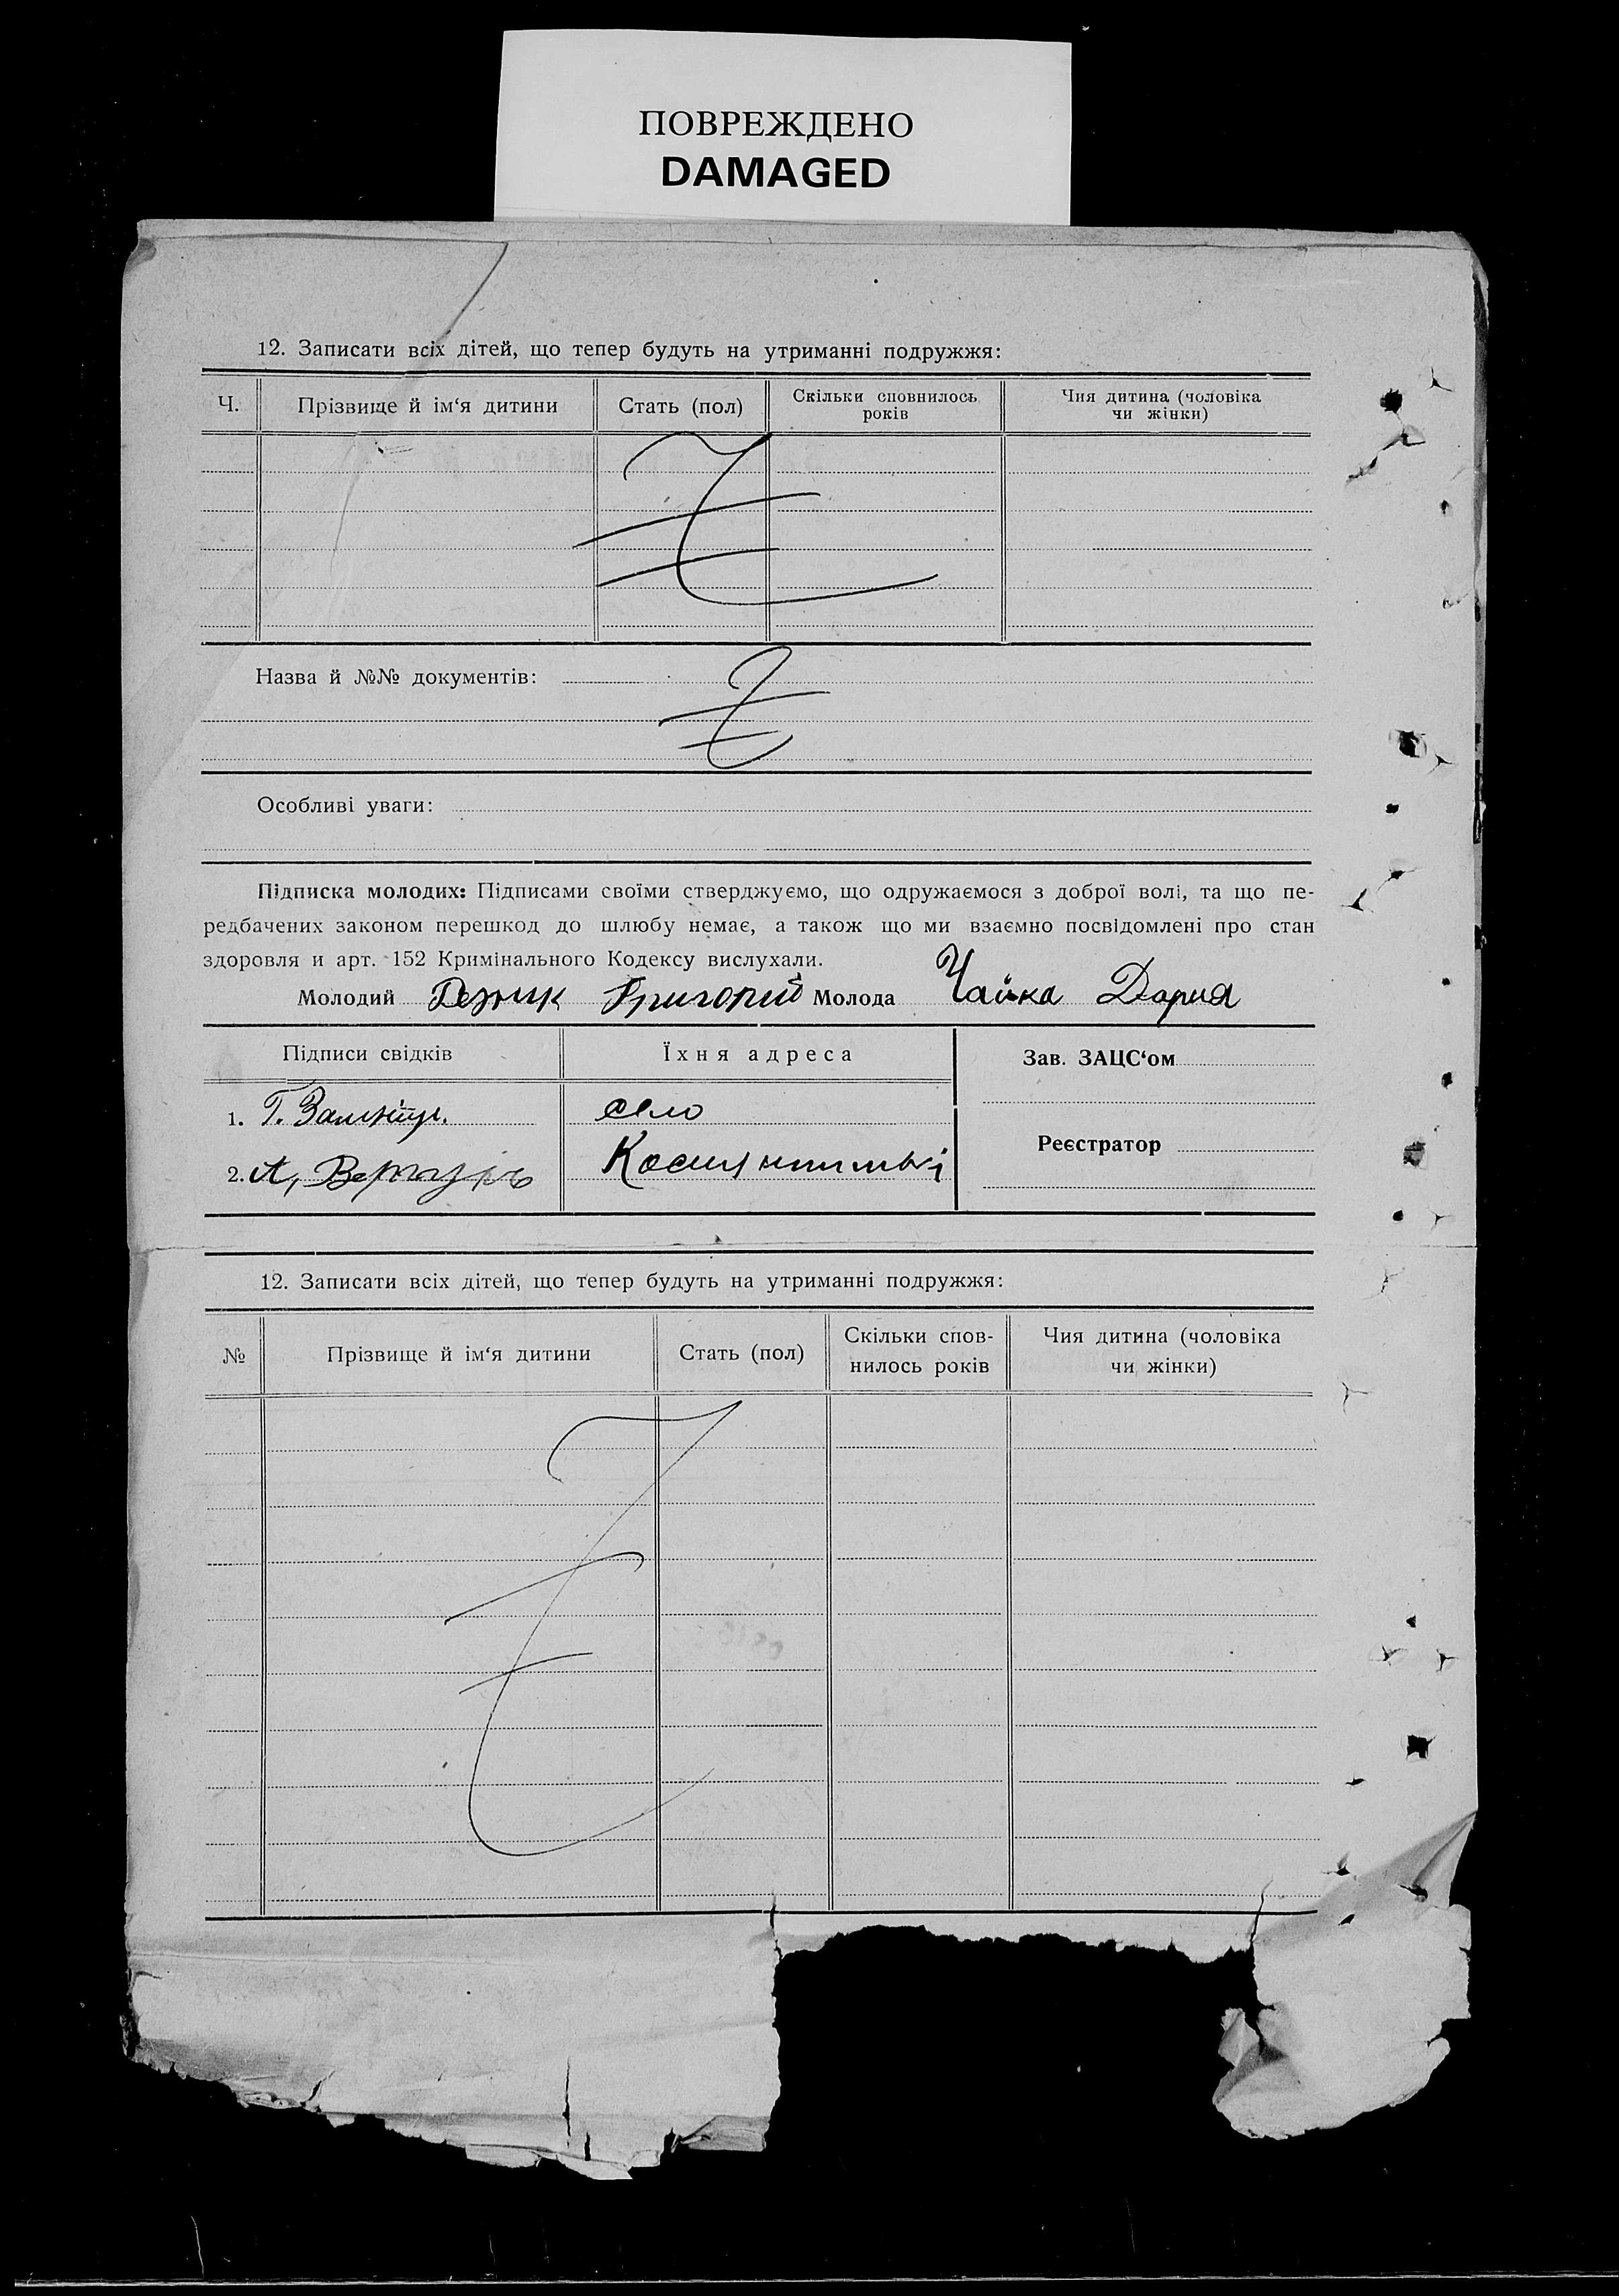 ПОВРЕЖДЕНО
DAMAGED
12. Записати всіх дітей, що тепер будуть на утриманні подружжя:
Ч. Прізвище й ім‘я дитини Стать (пол) Скільки сповнилось років Чия дитина (чоловіка чи жінки)
Назва й №№ документів:
Особливі уваги:
Підписка молодих: Підписами своїми стверджуємо, що одружаємося з доброї волі, та що пе-
редбачених законом перешкод до шлюбу немає, а також що ми взаємно посвідомлені про стан
здоровля и арт. 152 Кримінального Кодексу вислухали.
Молодий Григорий Молода Чайка Дария
Підписи свідків Їхня адреса Зав. ЗАЦС‘ом
1. Г. село
Реєстратор
2. А,
12. Записати всіх дітей, що тепер будуть на утриманні подружжя:
№ Прізвище й ім‘я дитини Стать (пол) Скільки спов- нилось років Чия дитина (чоловіка чи жінки)